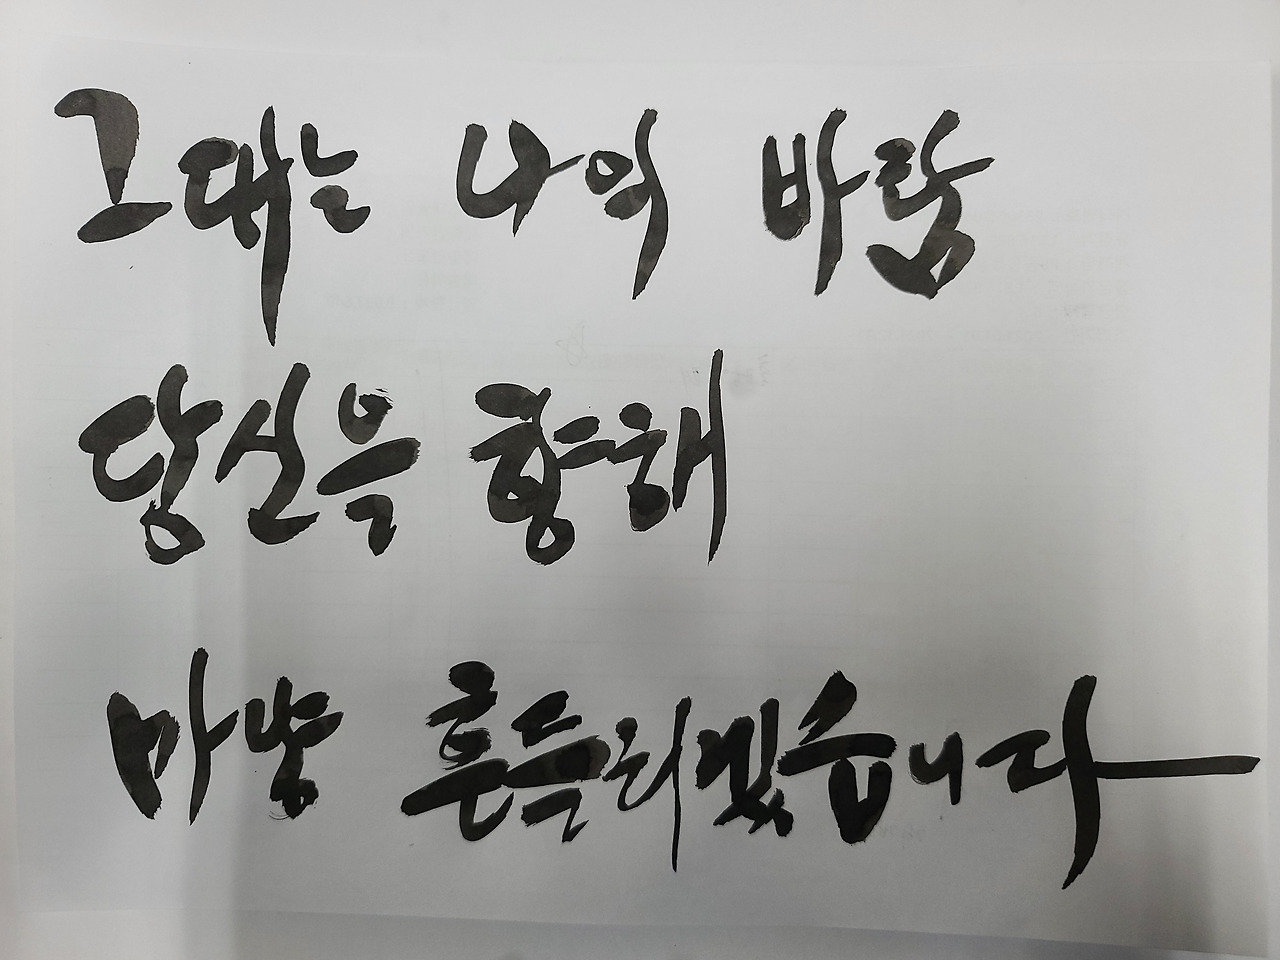 그대는 나의 바람
당신을 향해
마냥 흔들리겠습니다